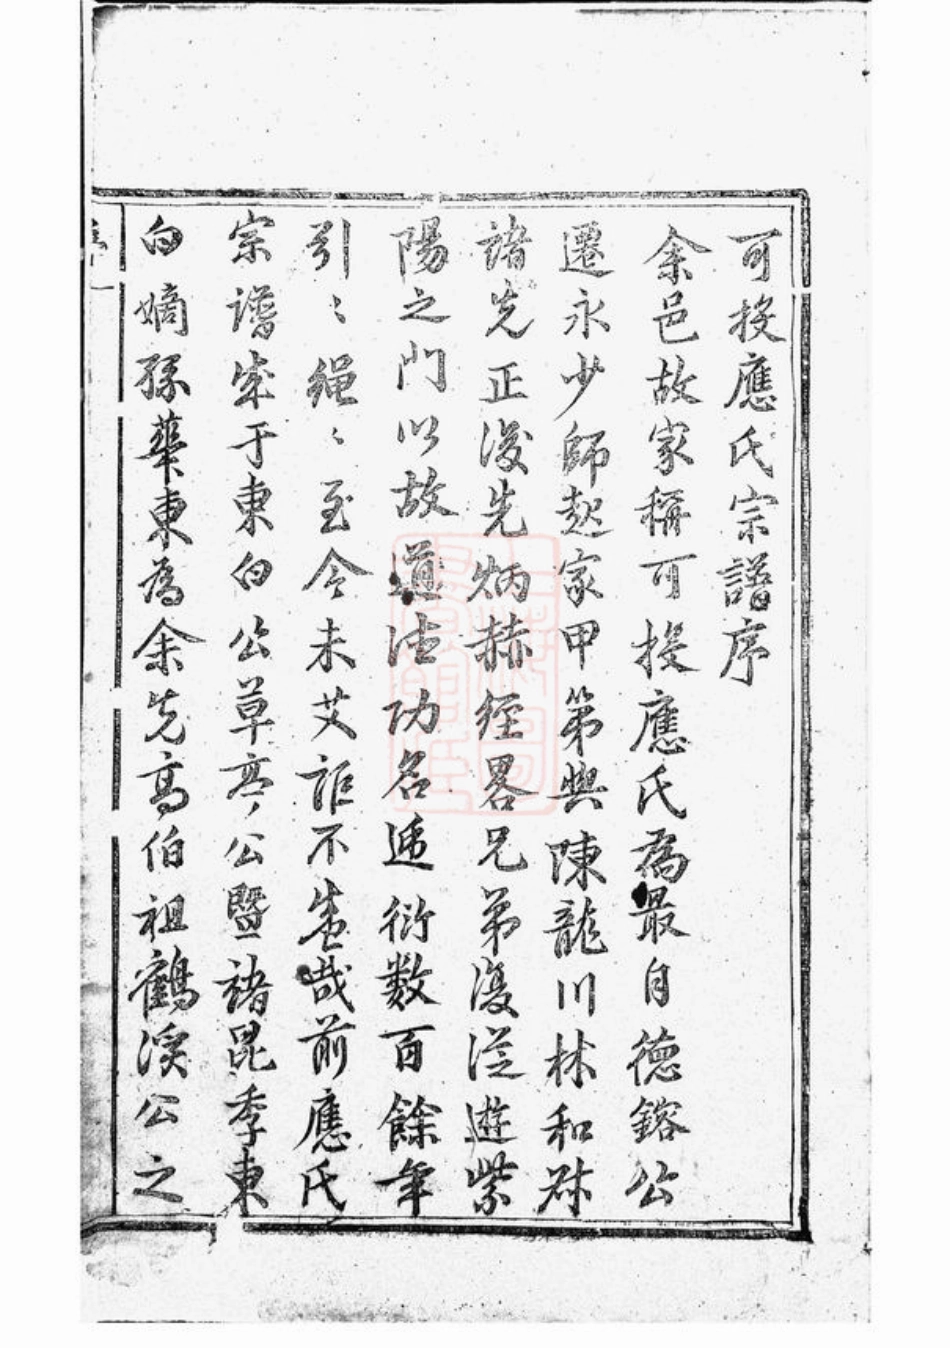 可投應氏宗譜序
余邑故家稱可投應氏為最自德鎔公
遷永少師起家甲第與陳龍川林和叔
諸先正後先炳赫經畧兄弟復從遊紫
陽之門以故道法功名遞衍數百餘年
引〻繩〻至今未艾詎不盛哉前應氏
宗譜成于東白公草亭公暨諸昆季東
白嫡孫華東為余先高伯祖鶴溪公之